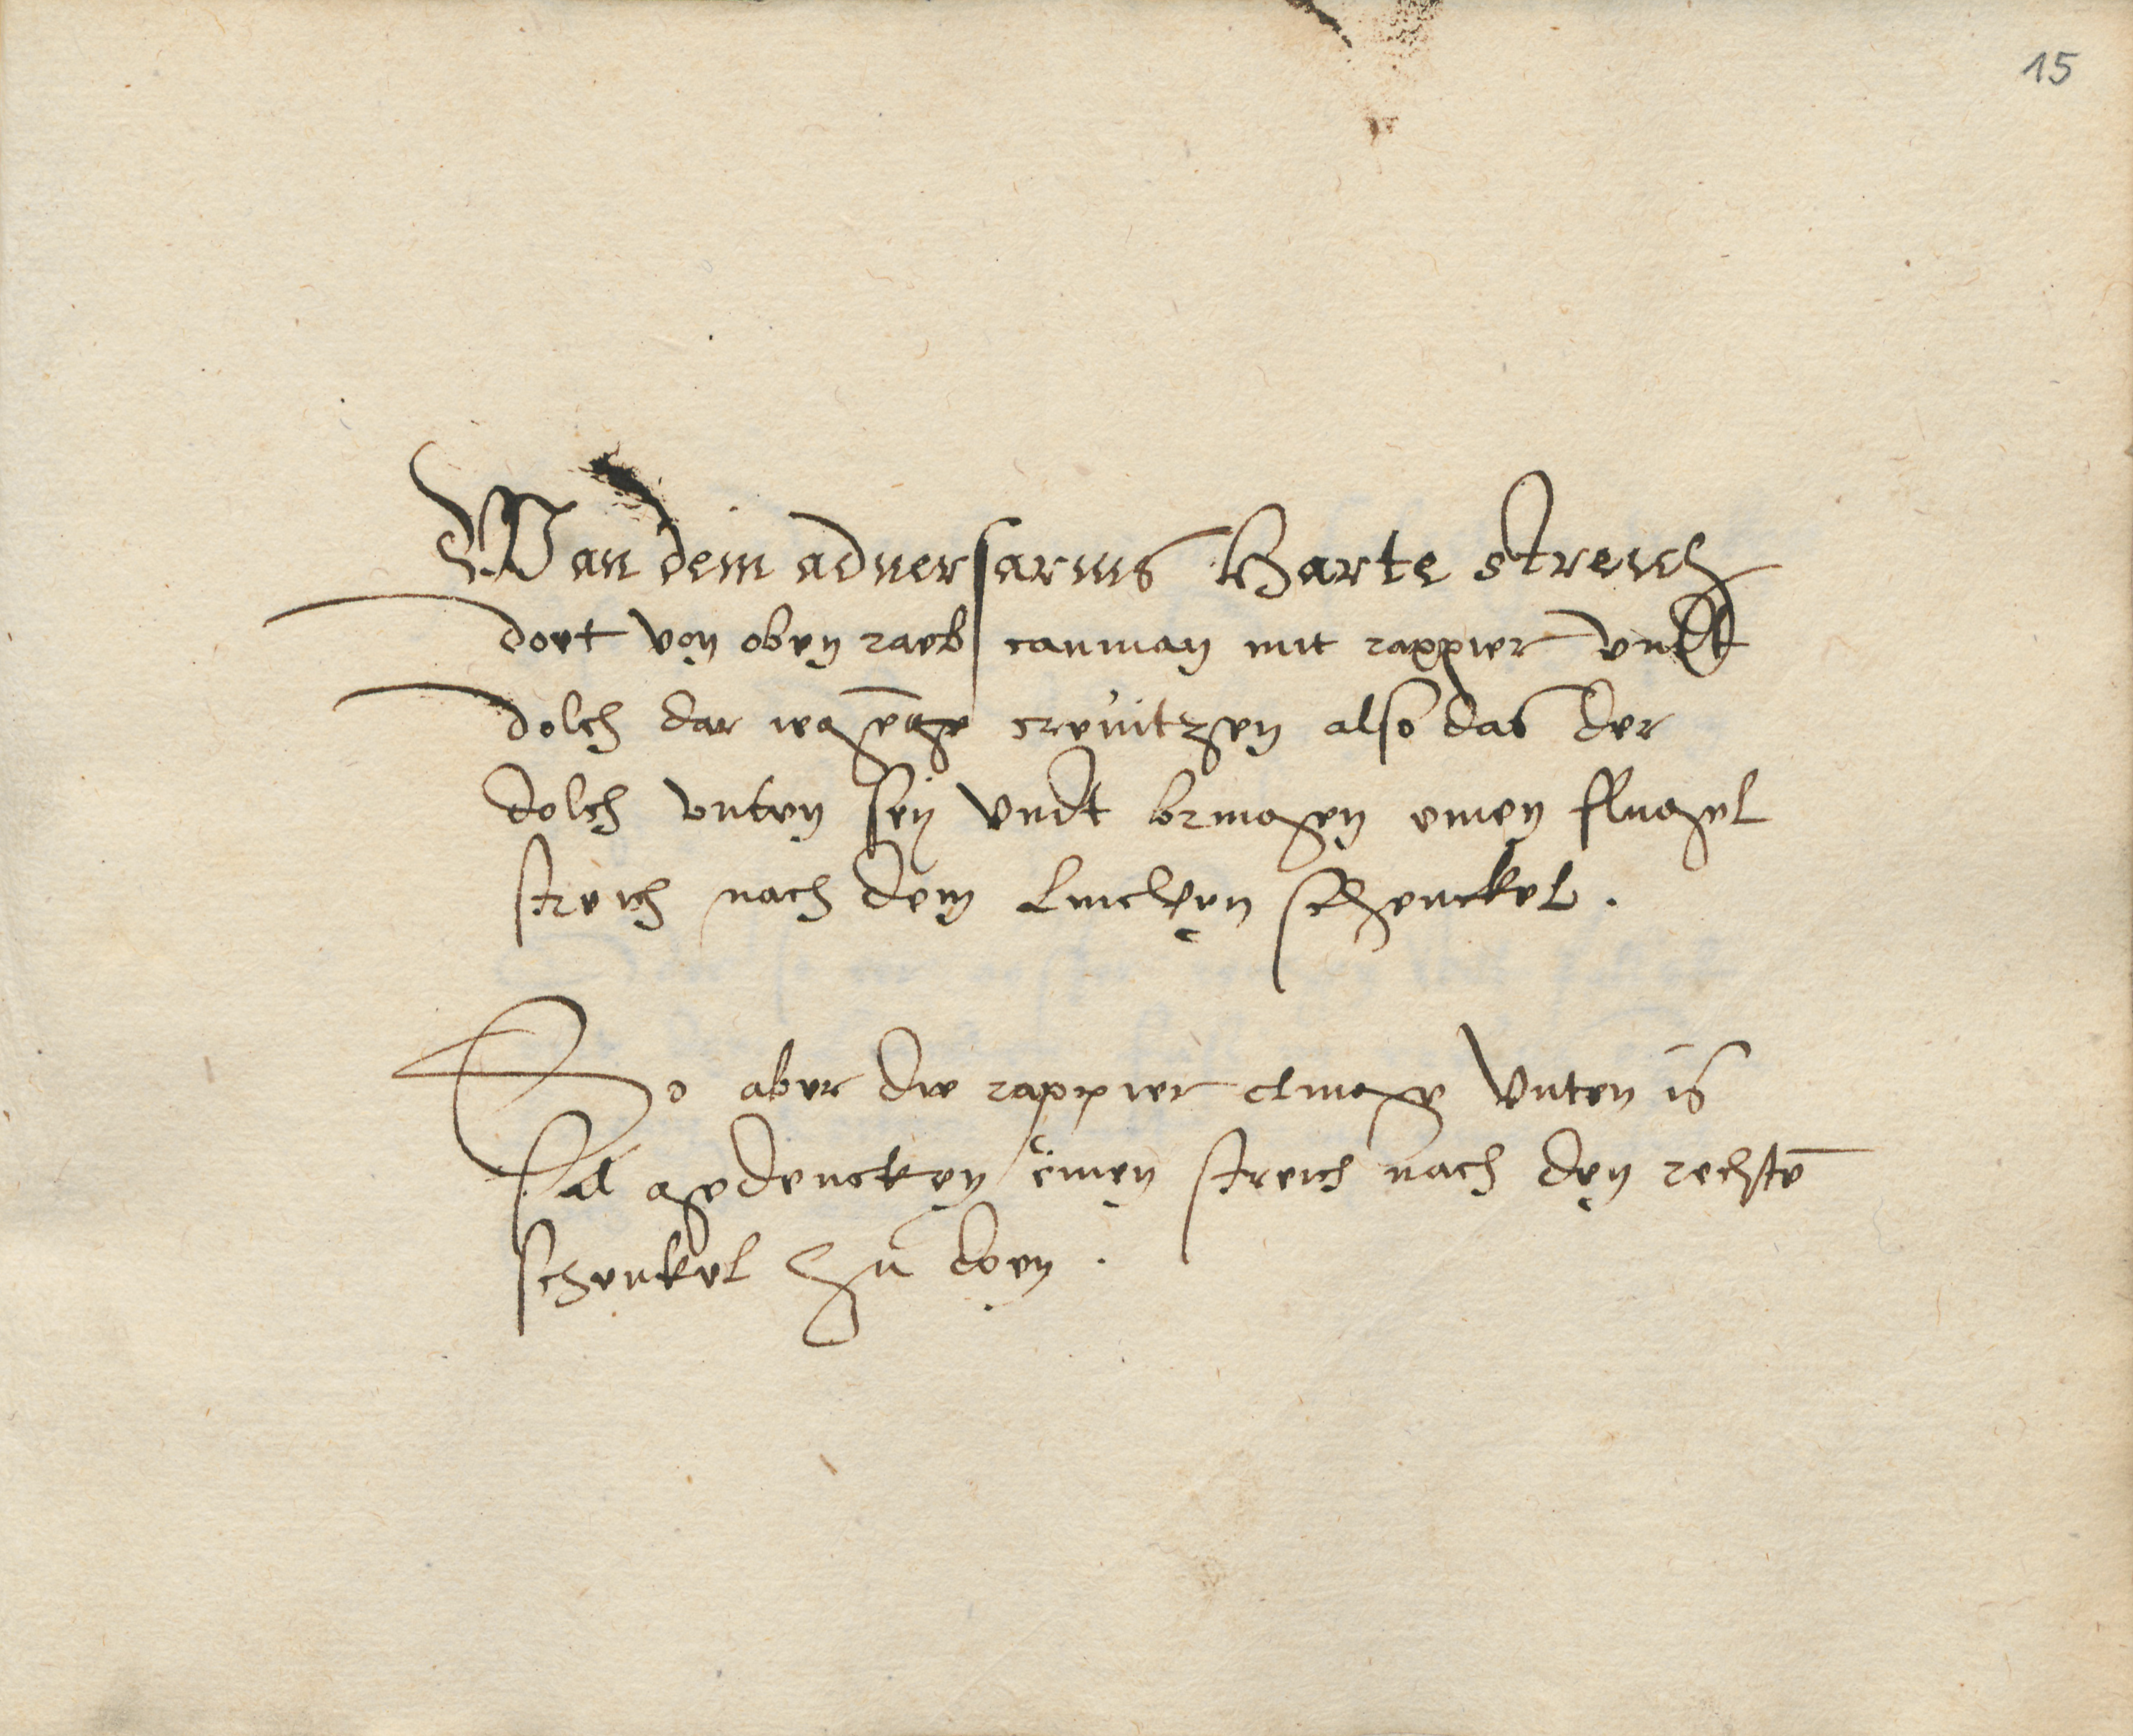 15
Wan dein aduersarius Harte streich
doet von oben raeb canman mit rappier vndt
dolch dar iegēge creuitzen also das der
dolch vnten sey vndt bringen einen flugel
streich nach dem Lincken schenckel.
So aber die rappier clinge vnten is
sal gedencken einen streich nach den rechtē
schenkel zu doen.